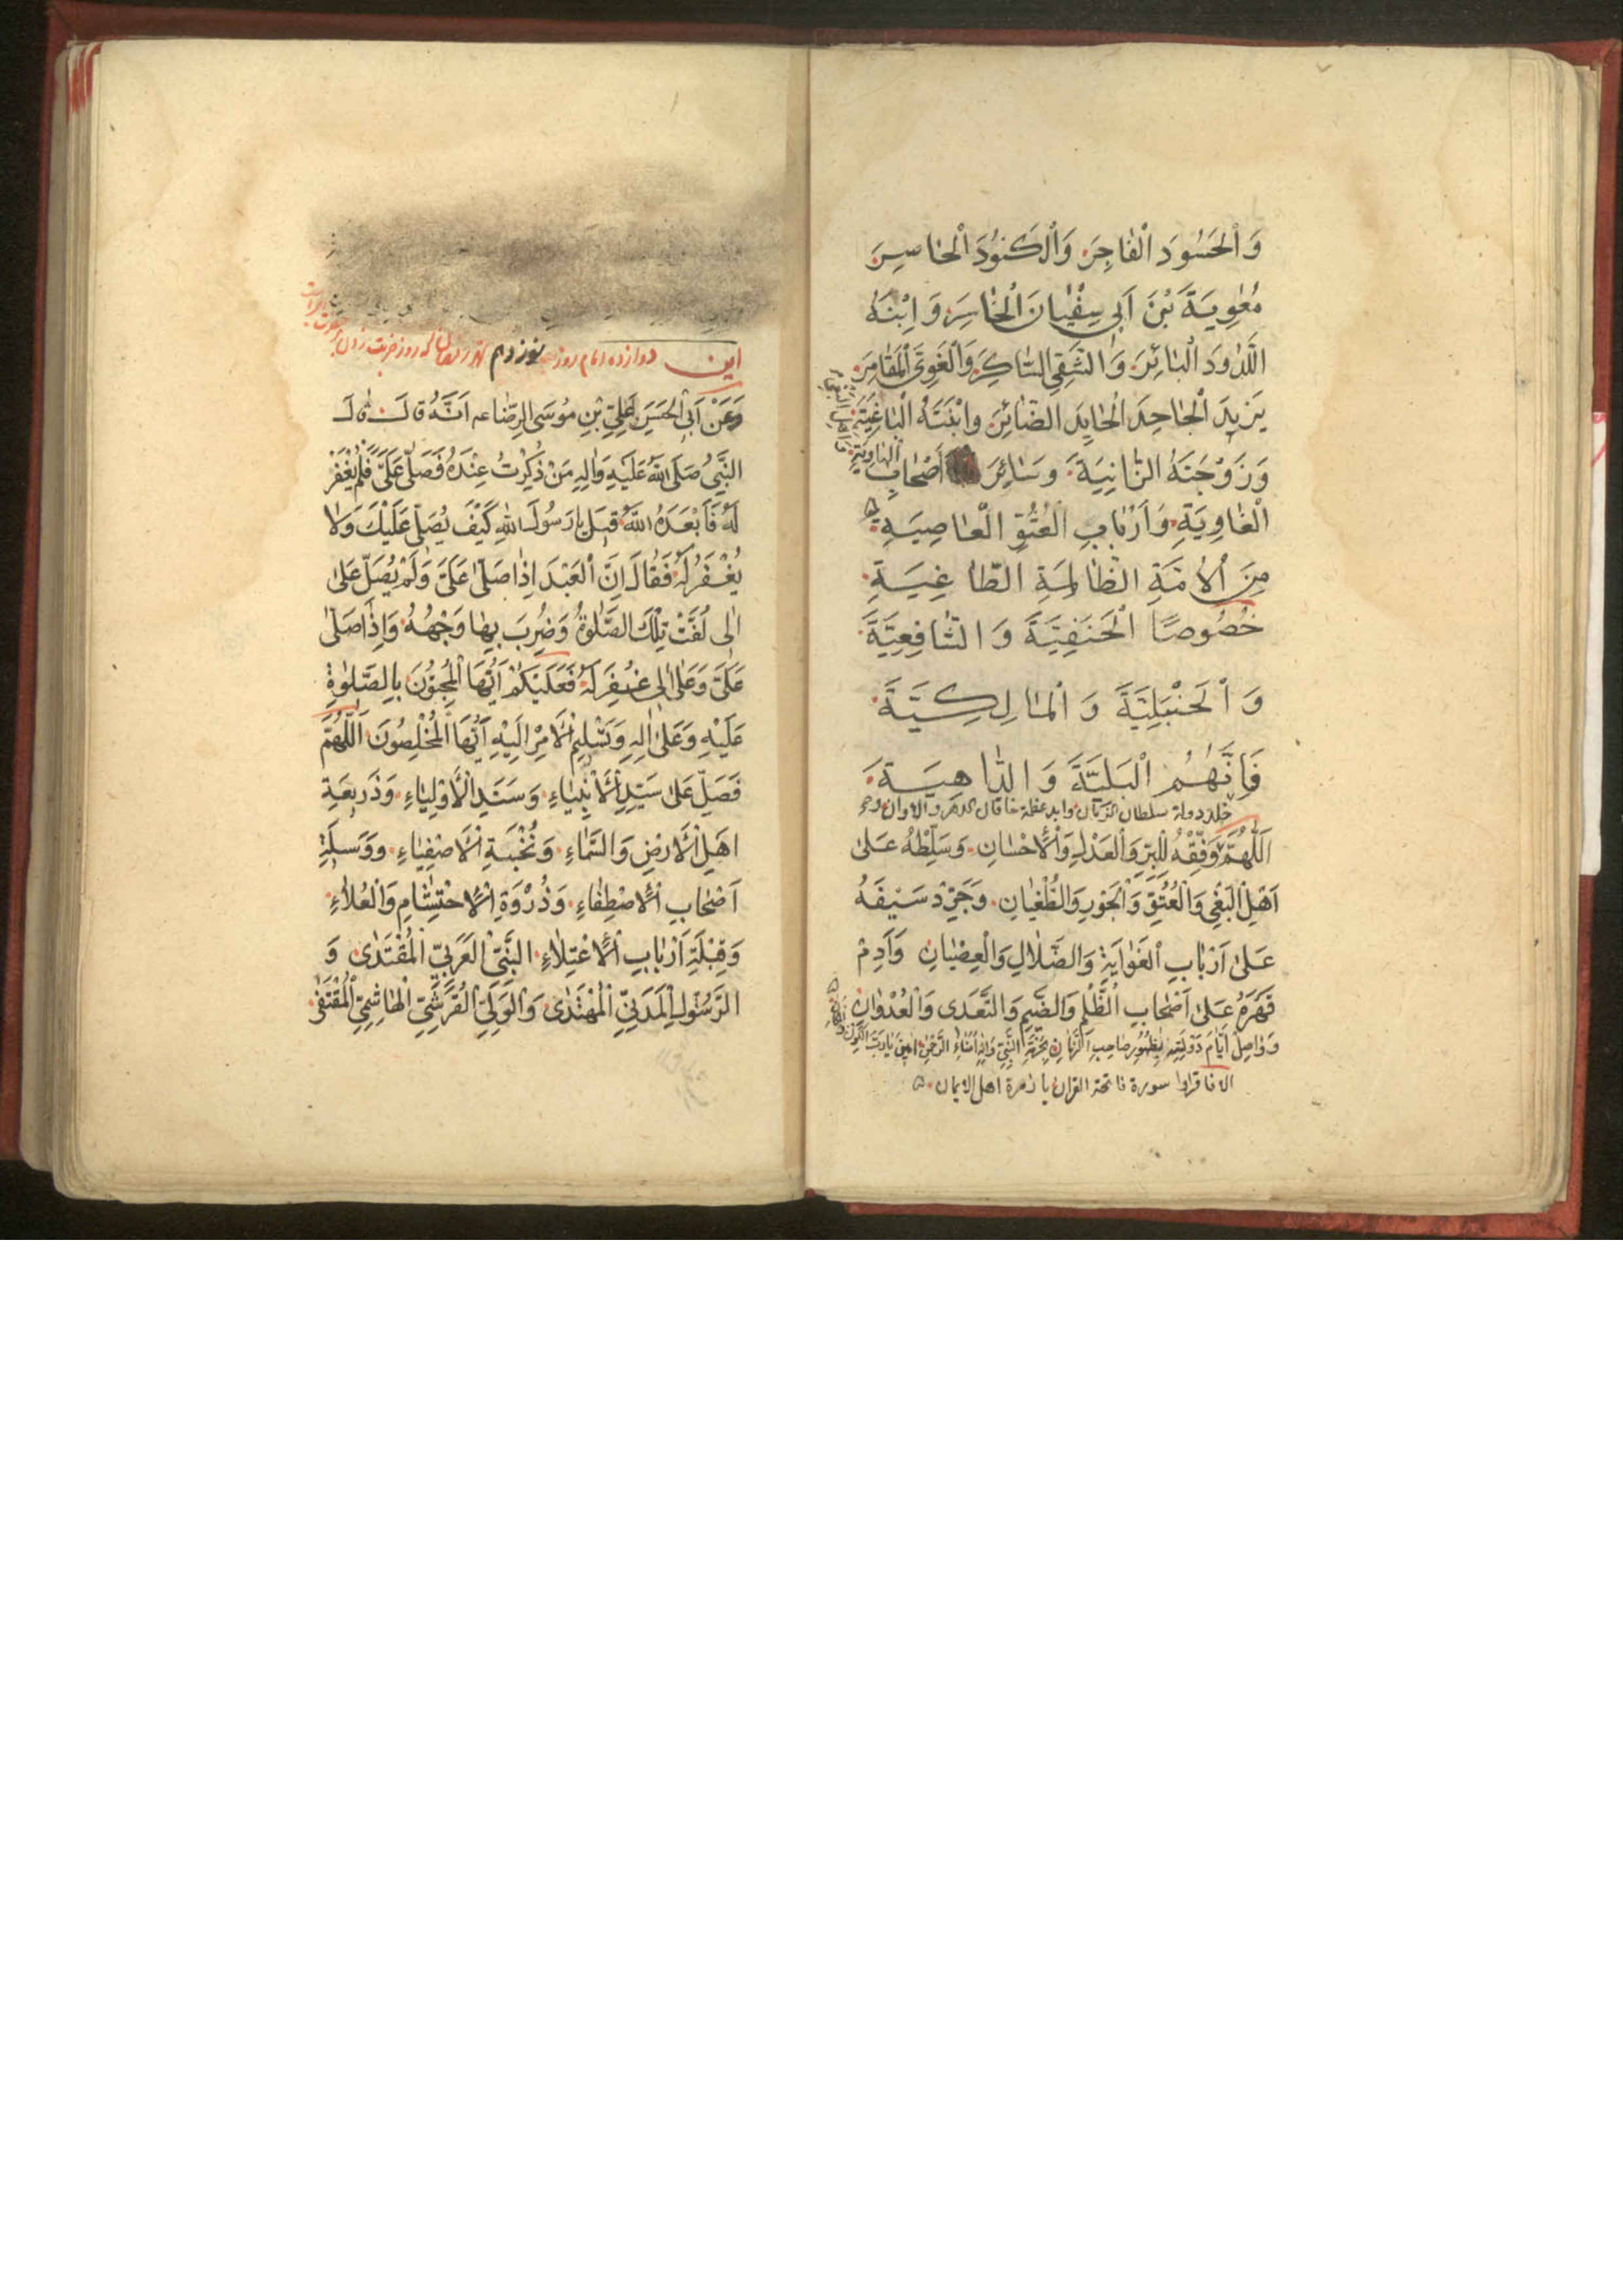 وَالْحَسُودَ الْفَاجِرَ وَالْكَنُودَ الْحَاسِرَ
مُعٰوِيَةَ بْنَ اَبِى سُفْيٰانَ الْخٰاسِرَ وَابْنَهُ
اللَّدُودَ الْبٰائِرَ وَالشَّقِىَ السّٰاكِرَ وَالْغَوِىَّ الْمُقٰامِرَ
يَزِيدَ الْجٰاحِدَ الْحٰايِدَ الضّٰائِرَ وَابْنَتَهُ الْبٰاغِيَةَ
وَزَوْجَتَهُ الزّٰانِيَةَ وَسٰائِرَ اَصْحٰابِ
الْغٰاوِيَةِ وَاَرْبٰابِ الْعُتُوِّ الْعٰاصِيَةِ
مِنَ الْاُمَّةِ الظّٰالِمَةِ الطّٰاغِيَةِ
خُصُوصًا الْحَنَفِيَّةَ وَالشّٰافِعِيَّةَ
وَالْحَنْبَلِيَّةَ وَالْمٰالِكِيَّةَ
فَاِنَّهُمُ الْبَلِيَّةَ وَالدّٰاهِيَةَ
خلد دولة سلطان الزمان وابد عظمة خاقان الدهر والاوان
اَللّٰهُمَّ وَفِّقْهُ لِلْبِرِّ وَالْعَدْلِ وَالْاِحْسٰانِ وَسَلِّطْهُ عَلىٰ
اَهْلِ الْبَغْىِ وَالْعُتُوِّ وَالْجَوْرِ وَالطُّغْيٰانِ وَجَرِّدْ سَيْفَهُ
عَلىٰ اَرْبٰابِ الْغَوٰايَةِ وَالضَّلٰالِ وَالْعِصْيٰانِ وَاَدِمْ
قَهْرَهُ عَلىٰ اَصْحٰابِ الظُّلْمِ وَالضَّيْمِ وَالتَّعَدِى وَالْعُدْوٰانِ
وَوٰاصِلْ اَيّٰامَ دَوْلَتِهِ بِظُهُورِ صٰاحِبِ الزَّمٰانِ بِحُرْمَةِ النَّبِىِّ وَاٰلِهِ اُمَنٰاءِ الرَّحْمٰنِ امين يٰا رَبَّ
الا فاقراوا سورة فاتحة القران يا زمرة اهل الايمان
اين دوازده امام روز نوزدهم
وَعَنْ اَبِى الْحَسَنِ عَلِىِّ بْنِ مُوسَى الرِّضٰا عه اَنَّهُ قٰالَ قٰالَ
النَّبِىُّ صَلَّى اللّٰهُ عَلَيْهِ وَاٰلِهِ مَنْ ذُكِرْتُ عِنْدَهُ فَصَلّىٰ عَلَىَّ فَلَمْ يُغْفَرْ
لَهُ فَاَبْعَدَهُ اللّٰهُ قِيلَ يٰا رَسُولَ اللّٰهِ كَيْفَ يُصَلّىٰ عَلَيْكَ وَلٰا
يُغْفَرُ لَهُ فَقٰالَ اِنَّ الْعَبْدَ اِذٰا صَلّىٰ عَلَىَّ وَلَمْ يُصَلِّ عَلىٰ
اٰلِى لُفَّتْ تِلْكَ الصَّلٰوةُ وَضُرِبَ بِهٰا وَجْهُهُ وَاِذٰا صَلّىٰ
عَلَىَّ وَعَلىٰ اٰلِى غُفِرَ لَهُ فَعَلَيْكُمْ اَيُّهَا الْمُحِبُّونَ بِالصَّلٰوةِ
عَلَيْهِ وَعَلىٰ اٰلِهِ وَتَسْلِيمِ الْاَمْرِ اِلَيْهِ اَيُّهَا الْمُخْلِصُونَ اَللّٰهُمَّ
فَصَلِّ عَلىٰ سَيِّدِ الْاَنْبِيٰاءِ وَسَنَدِ الْاَوْلِيٰاءِ وَذَرِيعَةِ
اَهْلِ الْاَرْضِ وَالسَّمٰاءِ وَنُخْبَةِ الْاَصْفِيٰاءِ وَوَسِيلَةِ
اَصْحٰابِ الْاِصْطِفٰاءِ وَذُرْوَةِ الْاِحْتِشٰامِ وَالْعُلٰاءِ
وَقِبْلَةِ اَرْبٰابِ الْاِعْتِلٰاءِ النَّبِىِّ الْعَرَبِىِّ الْمُقْتَدىٰ وَ
الرَّسُولِ الْمَدَنِىِّ الْمُهْتَدىٰ وَالْوَلِىِّ الْقُرَشِىِّ الْهٰاشِمِىِّ الْمُقْتَفىٰ